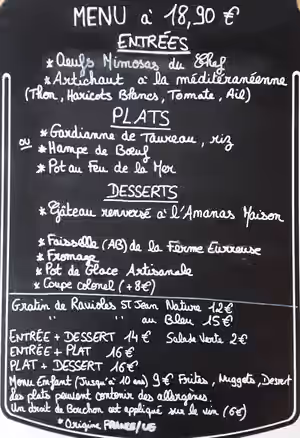 MENU à 18,90 €
ENTRÉES
* Oeufs Mimosas du Chef
* Artichaut à la méditéranéenne
(Thon, Haricots Blancs, Tomate, Ail)
PLATS
* Gardianne de Taureau, riz
ou * Hampe de Boeuf
* Pot au Feu de la Mer
DESSERTS
* Gâteau renversé à l'Ananas Maison
* Faisselle (AB) de la Ferme Eurreuse
* Fromage
* Pot de Glace Artisanale
* Coupe colonel (+8€)
Gratin de Ravioles St Jean Nature 12€
" " au Bleu 15€
ENTRÉE + DESSERT 14€ Salade Verte 2€
ENTRÉE + PLAT 16€
PLAT + DESSERT 16€
Menu Enfant (Jusqu'à 10 ans) 9€ Frites, Nuggets, Desert
Les plats peuvent contenir des allergènes.
Un droit de Bouchon est appliqué sur le vin (6€)
* Origine FRANCE/UE